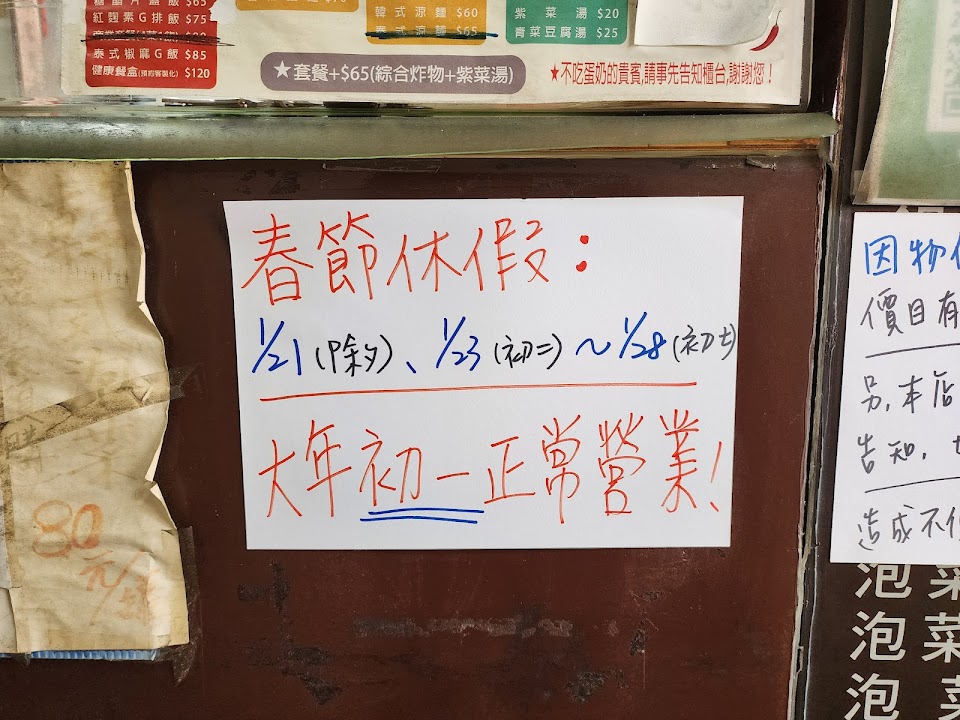 紅麴素G排飯 $75
泰式椒麻G飯 $85
健康餐盒(預約客製化) $120
韓式涼麵 $60
泰式涼麵 $65
紫菜湯 $20
青菜豆腐湯 $25
★套餐+$65(綜合炸物+紫菜湯)
★不吃蛋奶的貴賓,請事先告知櫃台,謝謝您！
春節休假：
1/21(除夕)、1/23(初二)～1/28(初七)
大年初一正常營業！
80
元/
因物
價目有
另,本店
告知,
造成不
泡菜
泡菜
泡菜